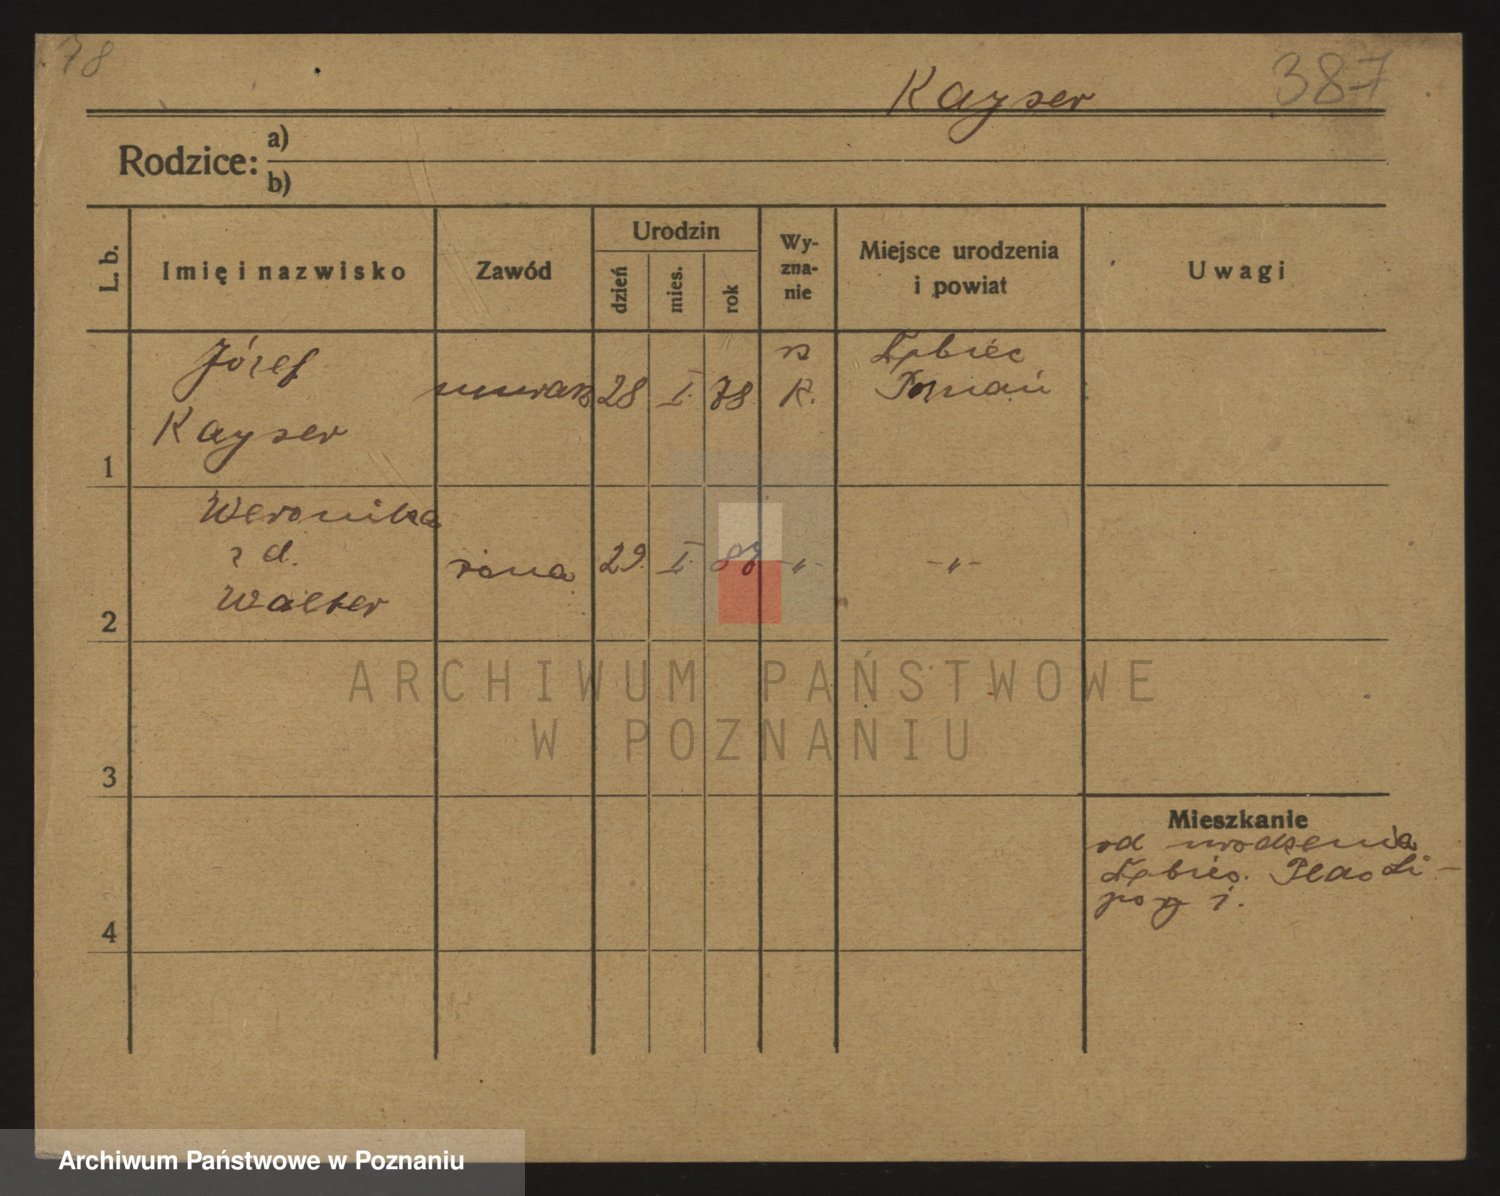 78
Kayser 387
Rodzice: a)
b)
L. b. Imię i nazwisko Zawód Urodzin dzień mies. rok Wy-zna-nie Miejsce urodzenia i powiat Uwagi
1 Józef Kayser murarz 28 I. 78 rz K. Dębiec Poznań
2 Weronika z d. Walter żona 29. I. -"- -"-
3
4
Mieszkanie
od urodzenia
Dębiec. Plac Li-
powy 1.
ARCHIWUM PAŃSTWOWE
W POZNANIU
Archiwum Państwowe w Poznaniu